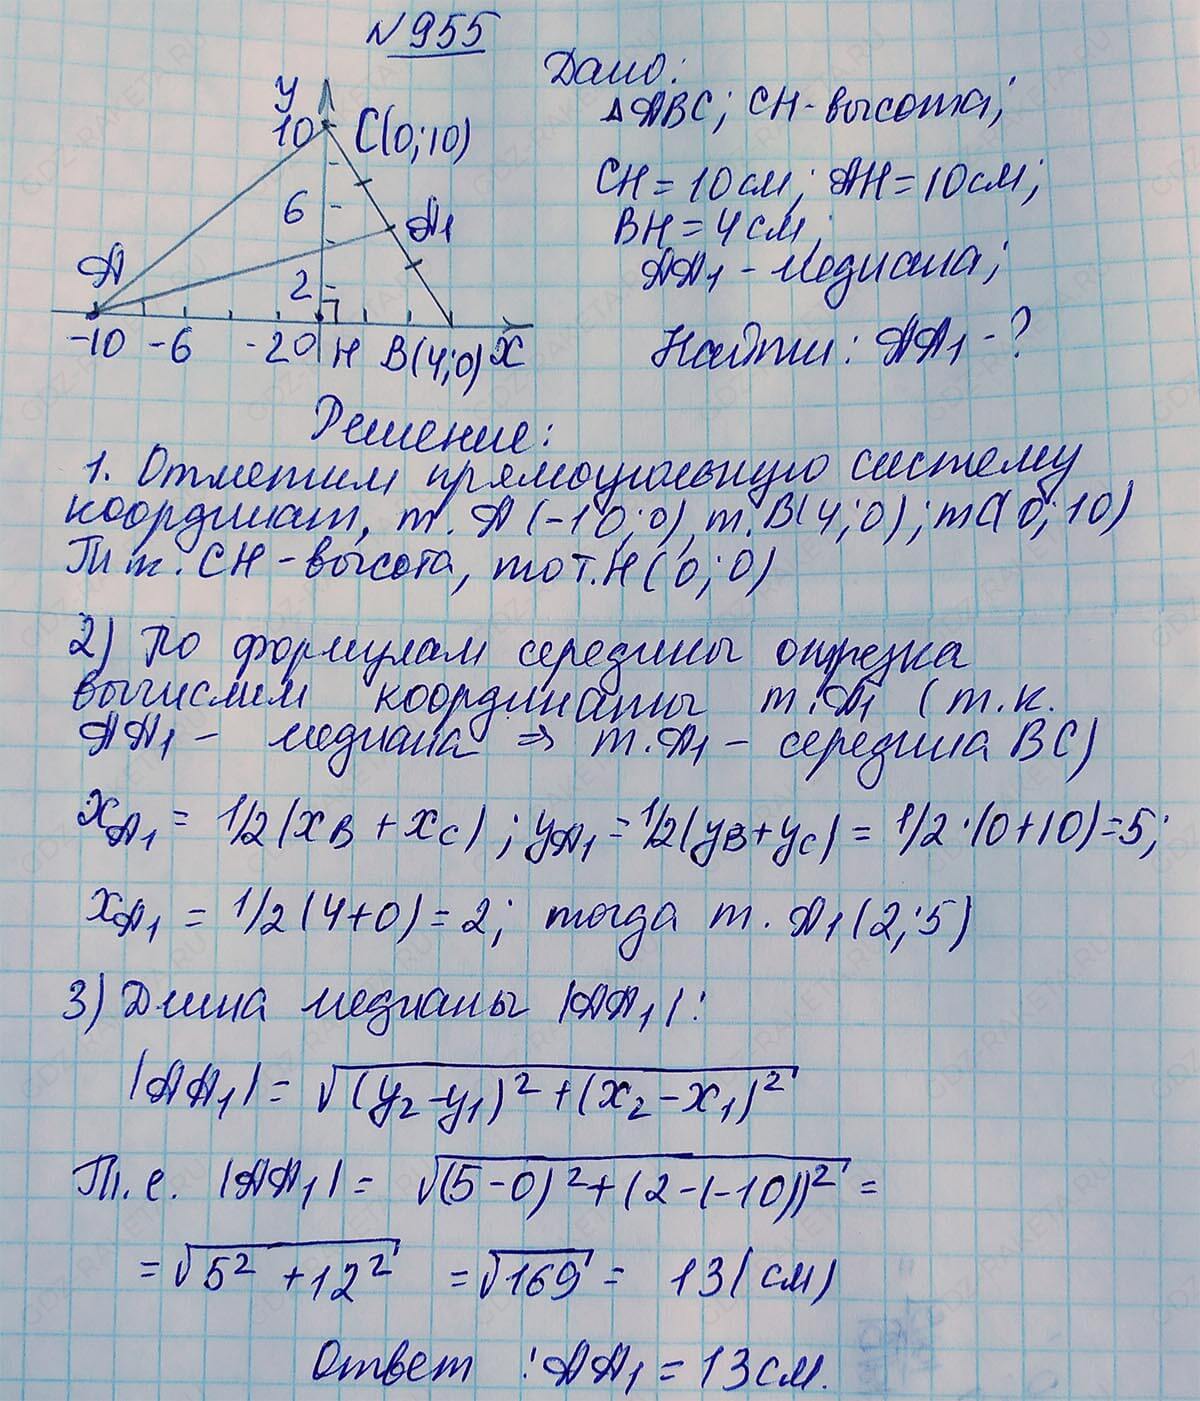 №955
Дано:
△ABC; CH - высота;
CH = 10 см; AH = 10 см;
BH = 4 см;
AA₁ - медиана;
Найти: AA₁ - ?
y
10
C(0;10)
6
A₁
A
2
-10 -6 -2 0 H B(4;0) x
Решение:
1. Отметим прямоугольную систему
координат, т. A(-10;0), т. B(4;0); т C(0;10)
Т.к. CH - высота, то т. H(0;0)
2) По формулам середины отрезка
вычислим координаты т. A₁ (т.к.
AA₁ - медиана ⇒ т. A₁ - середина BC)
x_A₁ = 1/2(x_B + x_C); y_A₁ = 1/2(y_B + y_C) = 1/2·(0+10)=5;
x_A₁ = 1/2(4+0) = 2; тогда т. A₁(2;5)
3) Длина медианы |AA₁|:
|AA₁| = √(y₂-y₁)² + (x₂-x₁)²
Т.е. |AA₁| = √(5-0)² + (2-(-10))² =
= √5² + 12² = √169 = 13 (см)
Ответ: AA₁ = 13 см.
GDZ-RAKETA.RU